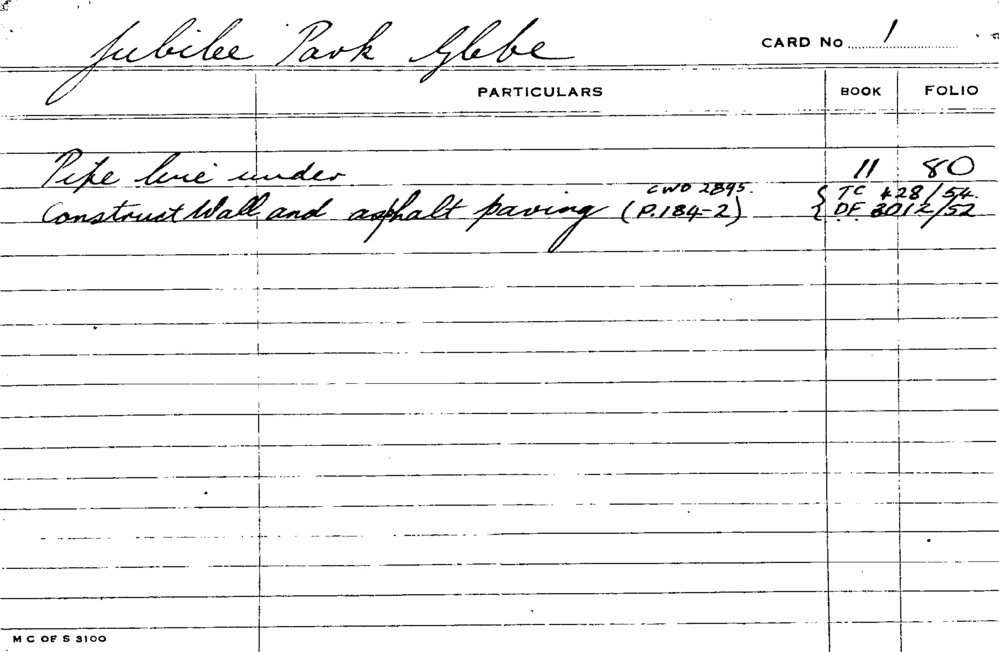 Jubilee Park Glebe CARD No 1
PARTICULARS BOOK FOLIO
Pipe line under 11 80
CWO 2895. { TC 428/54.
Construct Wall and asphalt paving (P.184-2) { DF. 3012/52
M C OF S 3100